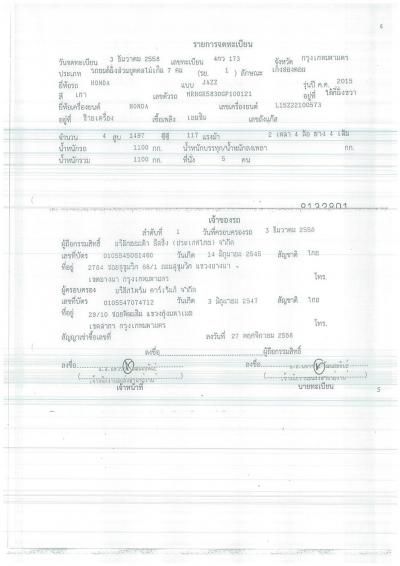 6
รายการจดทะเบียน
วันจดทะเบียน 3 ธันวาคม 2558 เลขทะเบียน 4กว 173 จังหวัด กรุงเทพมหานคร
ประเภท รถยนต์นั่งส่วนบุคคลไม่เกิน 7 คน (รย. 1 ) ลักษณะ เก๋งสองตอน
ยี่ห้อรถ HONDA แบบ JAZZ รุ่นปี ค.ศ. 2015
สี เทา เลขตัวรถ MRHGK5830GP100121 อยู่ที่
ยี่ห้อเครื่องยนต์ HONDA เลขเครื่องยนต์ L15Z22100573
อยู่ที่ เชื้อเพลิง เบนซิน เลขถังแก๊ส
จำนวน 4 สูบ 1497 ซีซี 117 แรงม้า 2 เพลา 4 ล้อ ยาง 4 เส้น
น้ำหนักรถ 1100 กก. น้ำหนักบรรทุก/น้ำหนักลงเพลา กก.
น้ำหนักรวม 1100 กก. ที่นั่ง 5 คน
เจ้าของรถ
ลำดับที่ 1 วันที่ครอบครองรถ 3 ธันวาคม 2558
ผู้ถือกรรมสิทธิ์ (ประเทศไทย) จำกัด
เลขที่บัตร 0105545051460 วันเกิด 14 มิถุนายน 2545 สัญชาติ ไทย
ที่อยู่ 2704 ซอยสุขุมวิท 66/1 ถนนสุขุมวิท แขวงบางนา
เขตบางนา กรุงเทพมหานคร โทร.
ผู้ครอบครอง จำกัด
เลขที่บัตร 0105547074712 วันเกิด 3 มิถุนายน 2547 สัญชาติ ไทย
ที่อยู่ 29/10 แขวงทุ่งมหาเมฆ
เขตสาทร กรุงเทพมหานคร โทร.
สัญญาเช่าซื้อเลขที่ ลงวันที่ 27 พฤศจิกายน 2558
ลงชื่อ ผู้ถือกรรมสิทธิ์
ลงชื่อ ลงชื่อ
เจ้าหน้าที่ นายทะเบียน
5